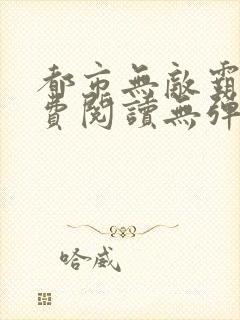 都市無敵霸
費閱讀無彈
哈威